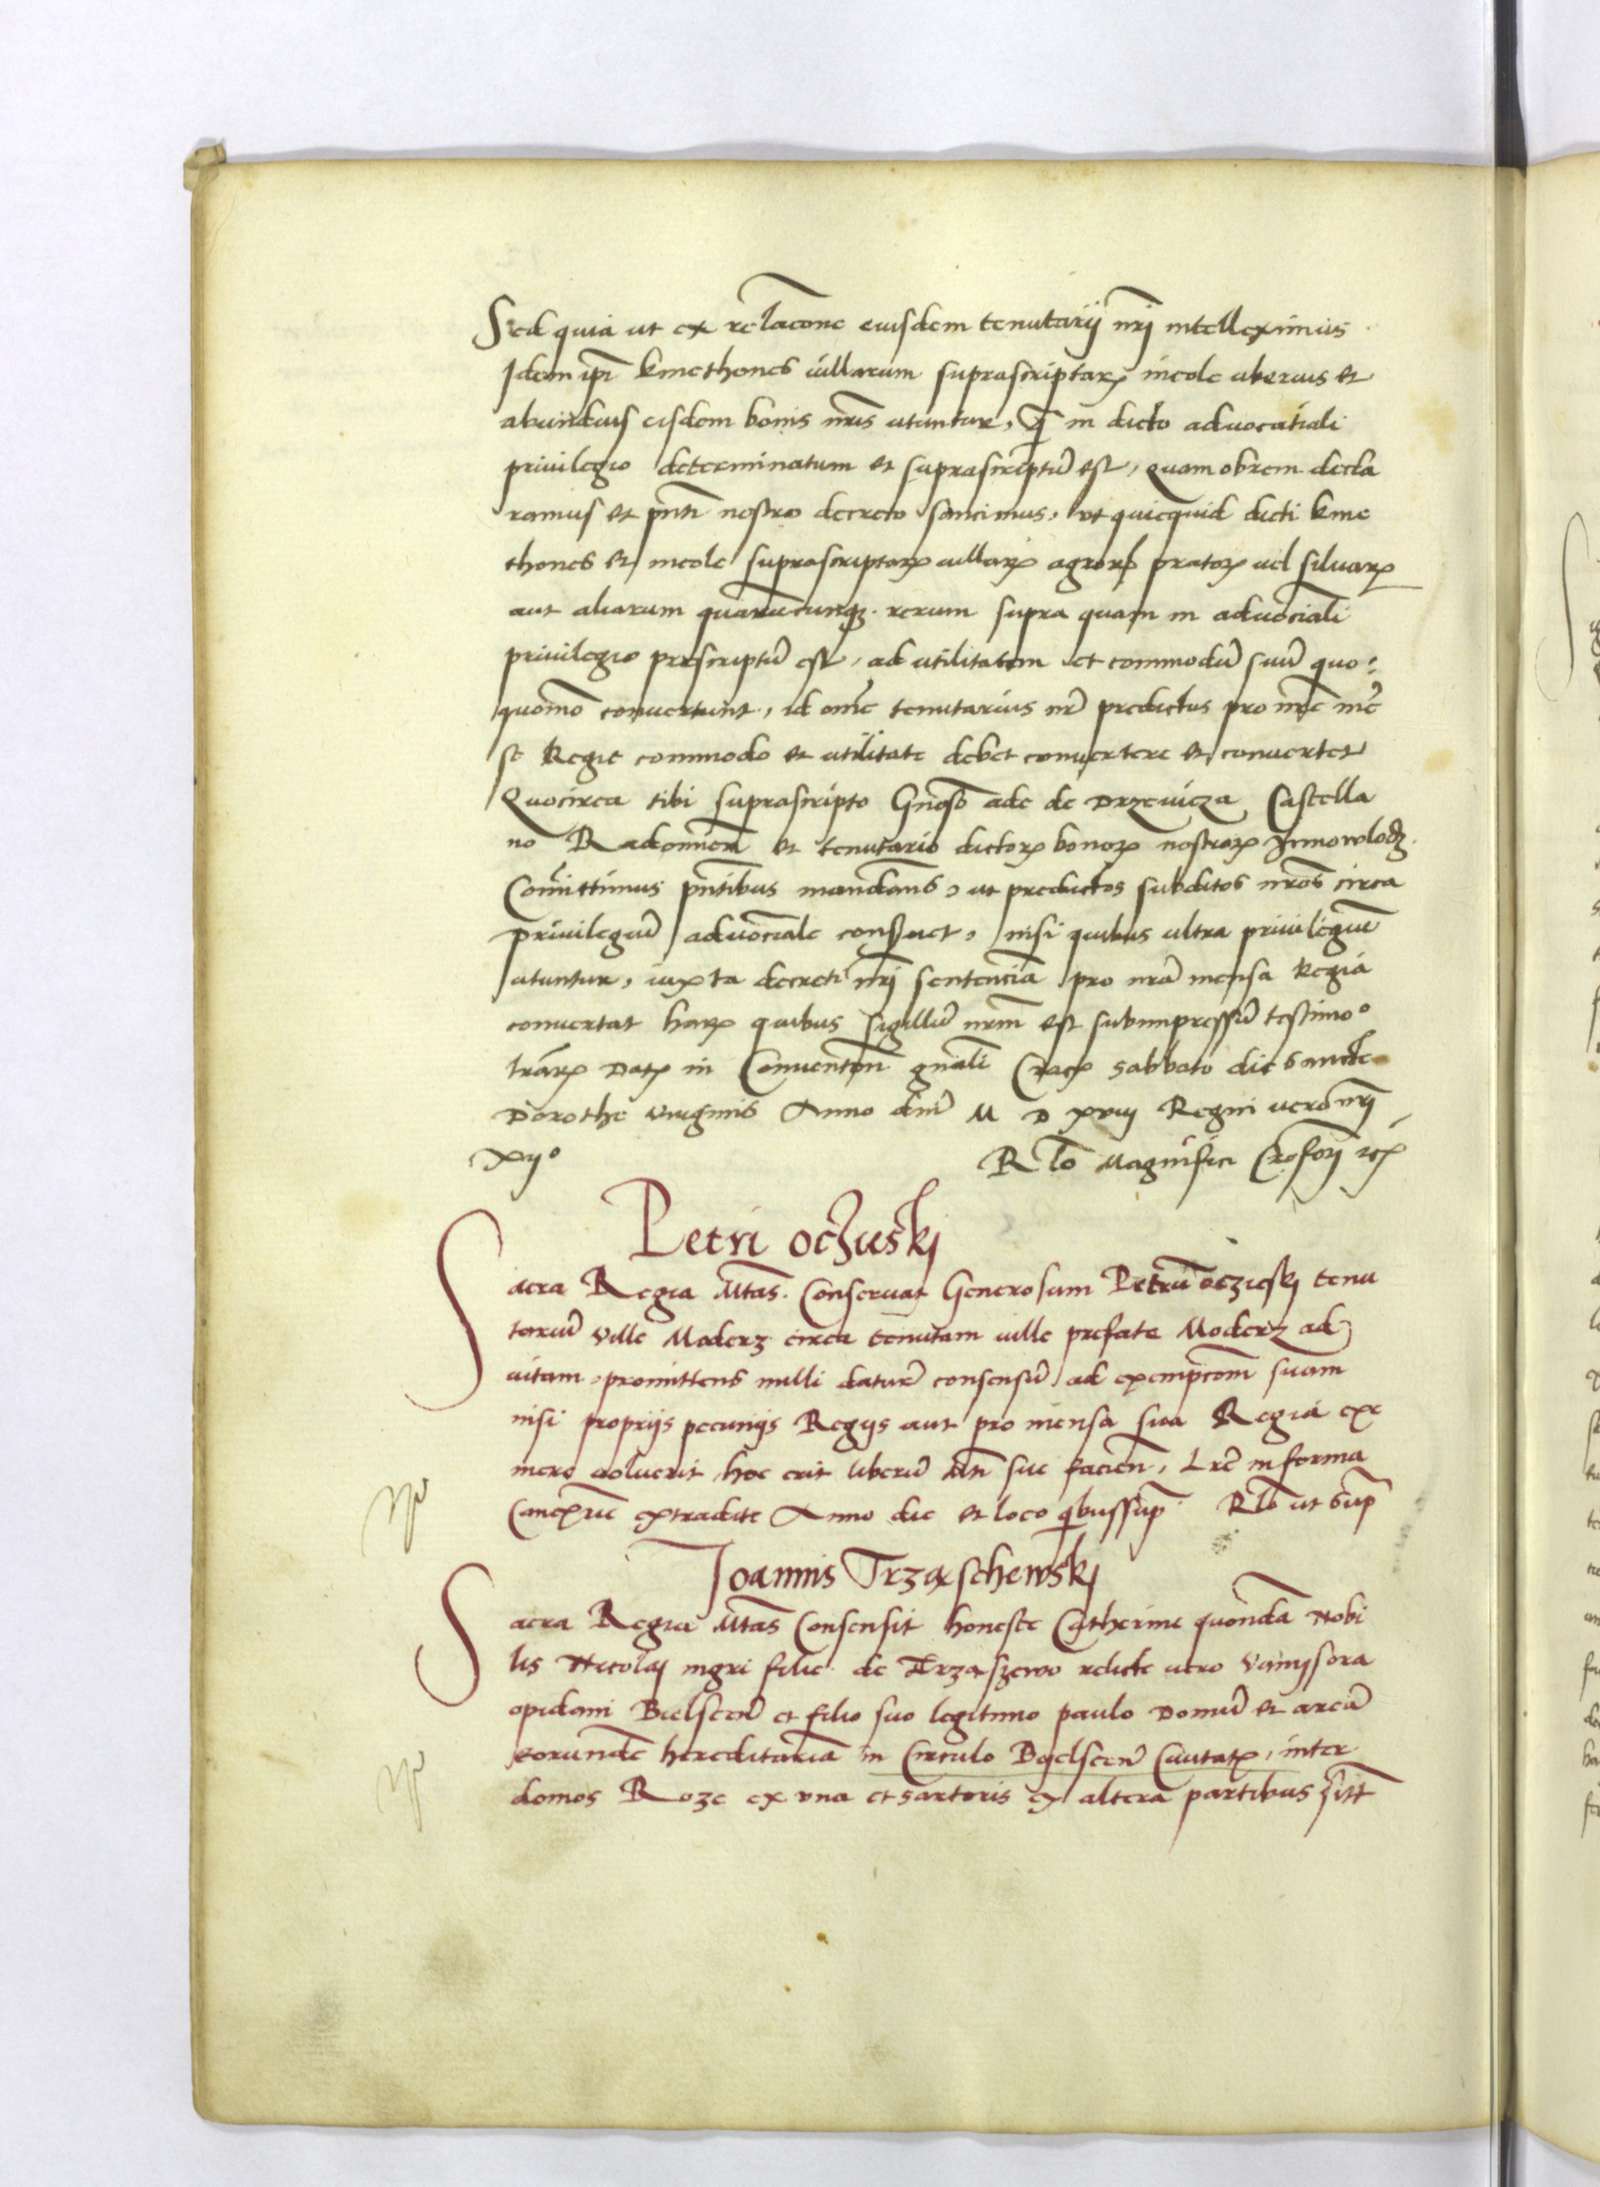 Sed quia ut ex relacone eiusdem tenutarij nrj intelleximus
Idem ipi kmethones villarum suprascriptarum incole uberius et
abundaius eisdem bonis nris utuntur, q in dicto advocatiali
privilegio determinatum et suprascriptu est, quam obrem decla
ramus et pnti nostro decreto sancimus, ut quicquid dicti kme
thones et incole suprascriptarum villarum agrorum pratorum vel silvarum
aut aliarum quarucunque rerum supra quam in advociali
privilegio prescriptu est, ad utilitatem et commodu suu quo:
quomo convertunt, id ome tenutarius nr predictus pro nre me
se Regie commodo et utilitate debet convertere et convertet
Quocirca tibi suprascripto Gnoso ade de Drzevicza Castella
no Radomien et tenutario dictorum bonorum nostrorum Innowlodz
Comittimus pntibus mandans, ut predictos subditos nros circa
privilegiu advociale conservet, nisi quibus ultra privilegium
utuntur, iuxta decreti nrj sentencia pro nra mensa Regia
convertat harum quibus sigillu nrm est subimpressu testimo
lrarum Datum in Conventon gnali Crac Sabbato die sancte
Dorothe virginis Anno dni M D xviij Regni vero nrj
xij°
Rlo Magnifici Crofori etc
Petri oczuskj
Sacra Regia Mtas Conservat Generosum Petru oczieskj tenu
tariu ville Moderz circa tenutam ville prefate Moderz ad
vitam promittens nulli dature consensu ad exempcom suam
nisi propriis pecuniis Regiis aut pro mensa sua Regia exe
mere voluerit hoc erit liberu Mti sue facien, Lre in forma
Canc extradite Anno die et loco quibussup Rlo ut sup
Joannis Trzaschewskj
Sacra Regia Mtas Consensit honeste Catherine quonda Nobi
lis Nicolaj nigri filie de Trzaszewo relicte vero Vanissora
opidani Bielscen et filio suo legitimo paulo Domu et area
eorunde hereditaria in Circulo Byelscen Civitatis, inter
domos Roze ex una et sartoris ex altera partibus sitt